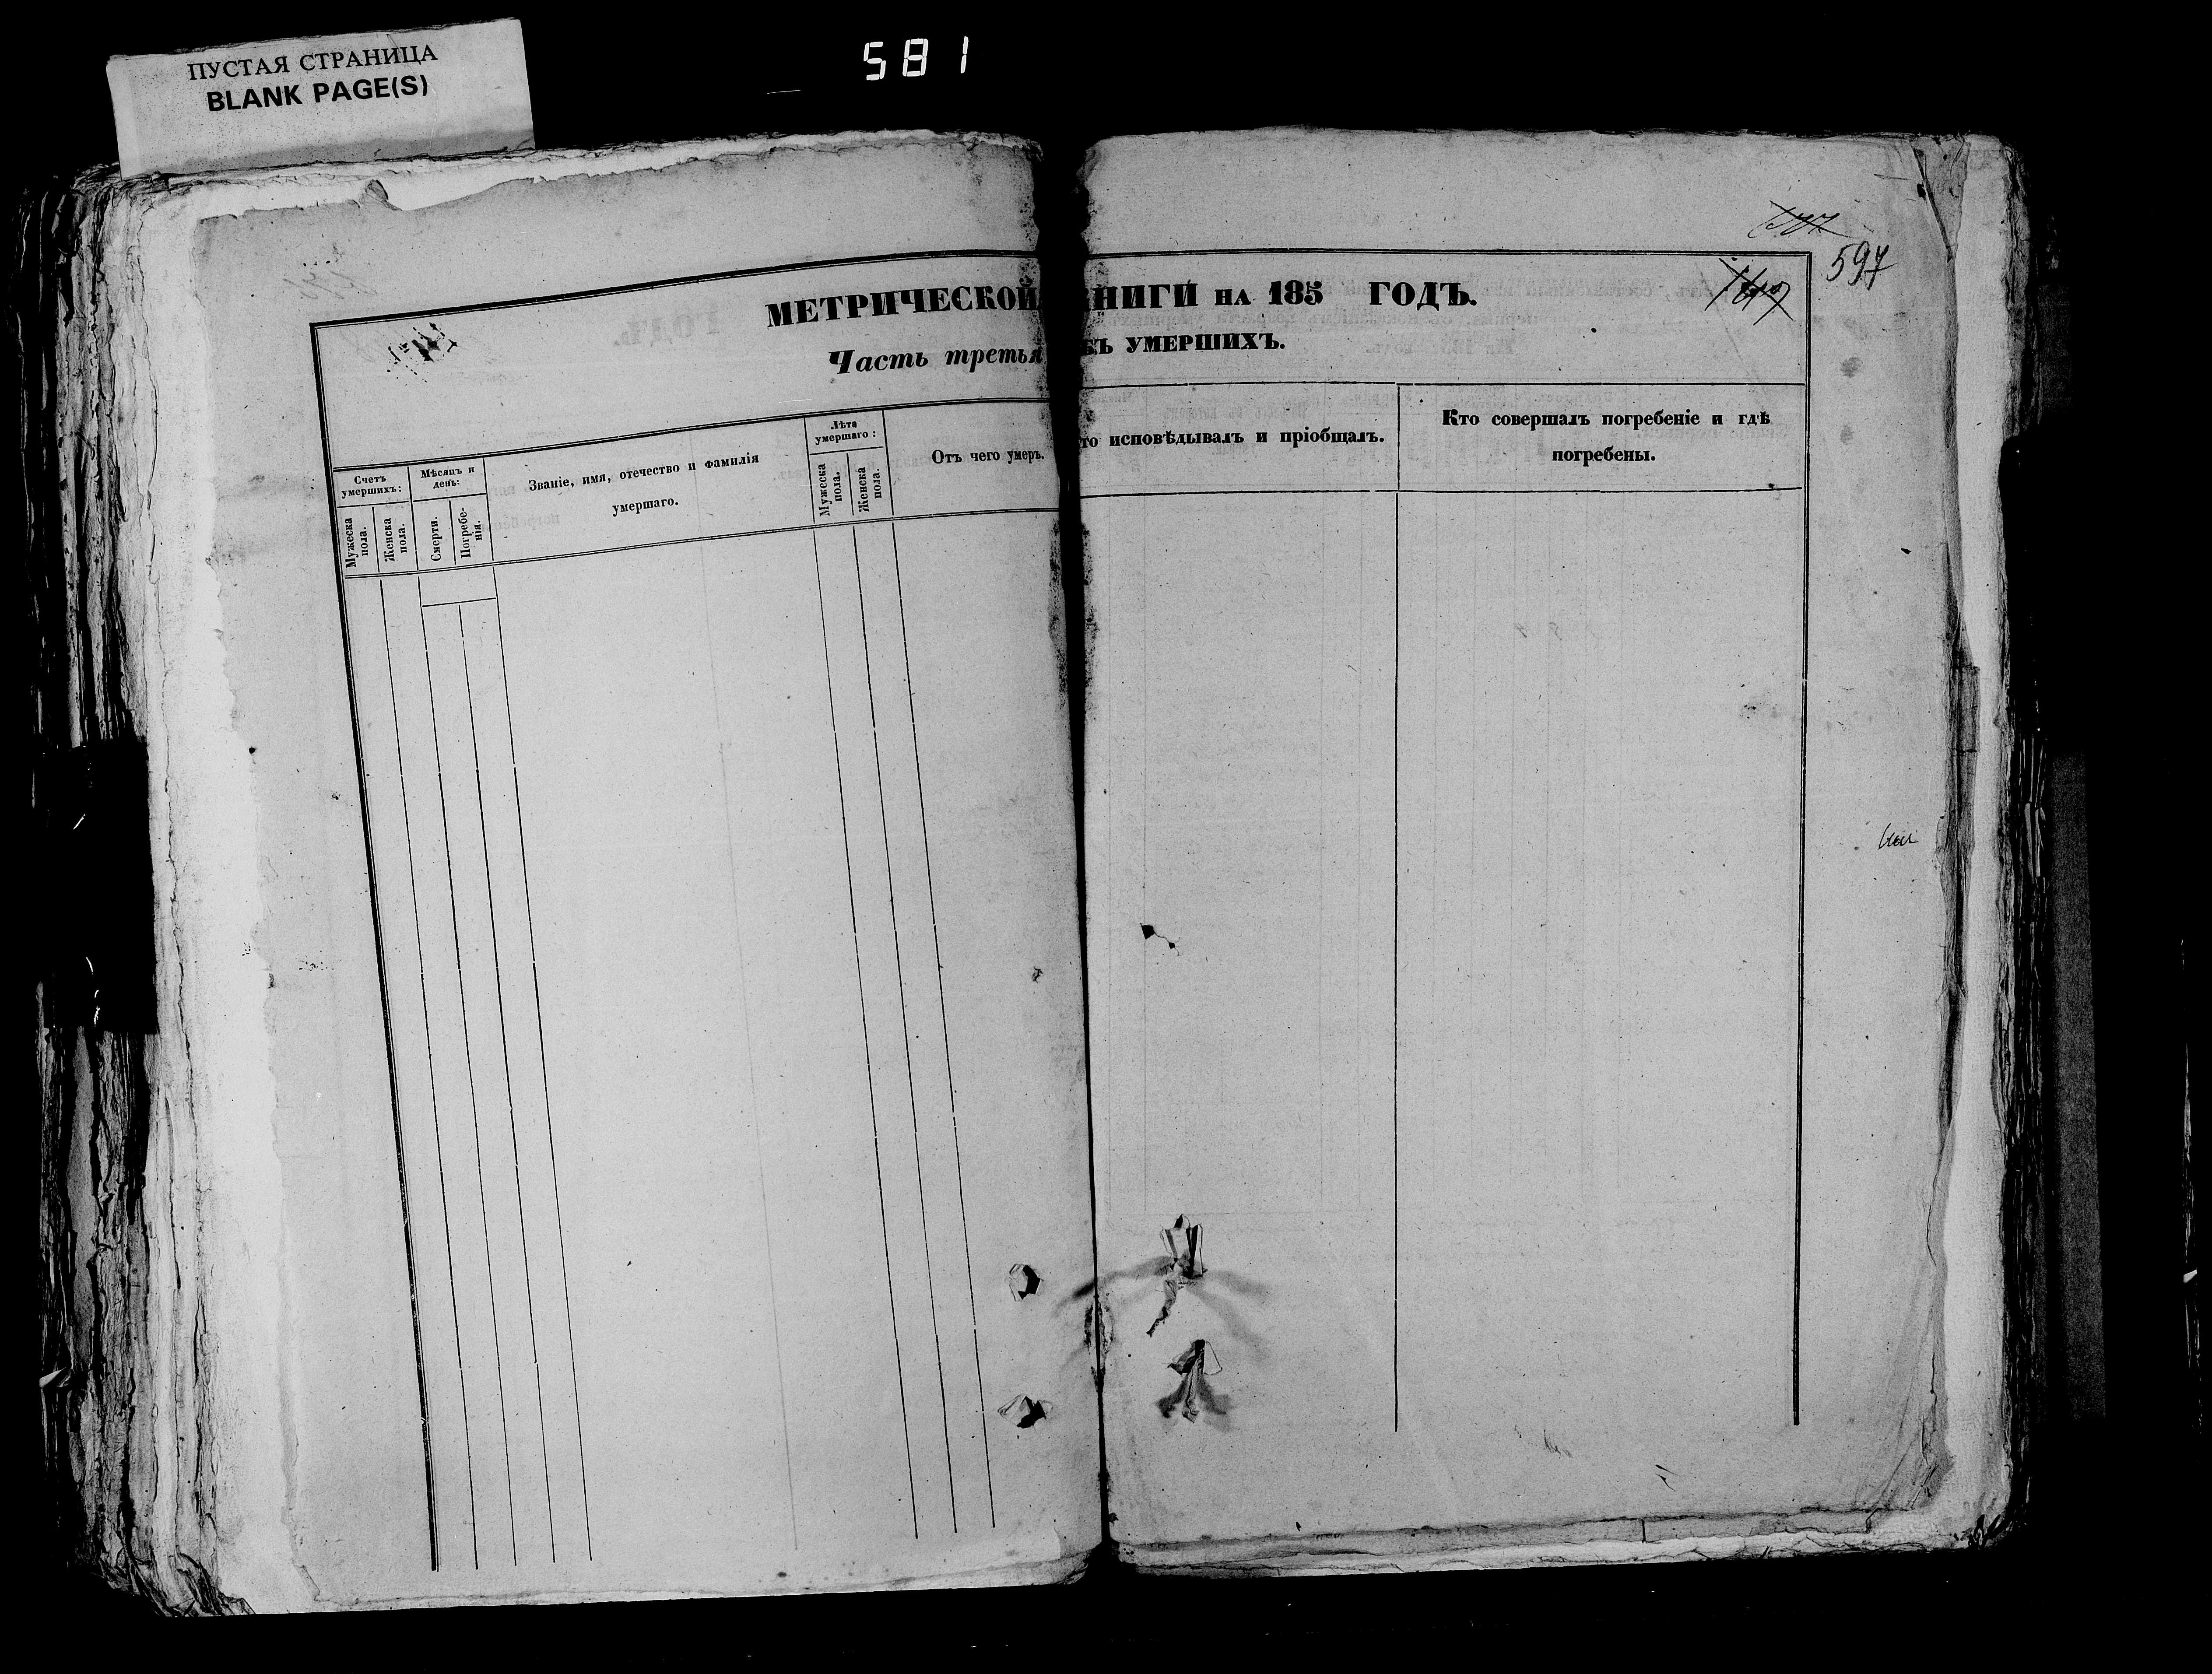 ПУСТАЯ СТРАНИЦА
BLANK PAGE(S)
581
597
МЕТРИЧЕСКОЙ НИГИ НА 185 ГОДЪ.
Часть третья Ъ УМЕРШИХЪ.
Счетъ
умершихъ:
Мужеска
пола.
Женска
пола.
Мѣсяцъ и
день:
Смерти.
Погребе-
нія.
Званіе, имя, отечество и фамилія
умершаго.
Лѣта
умершаго:
Мужеска
пола.
Женска
пола.
Отъ чего умеръ.
то исповѣдывалъ и пріобщалъ.
Кто совершалъ погребеніе и гдѣ
погребены.